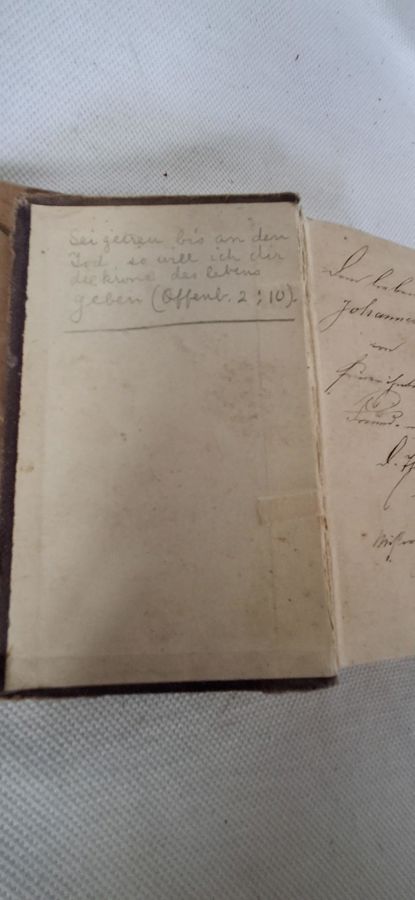 Sei getreu bis an den
Tod so will ich dir
die krone des lebens
geben (Offenb. 2:10).
Dem lieben
Johannes
von
Freund.